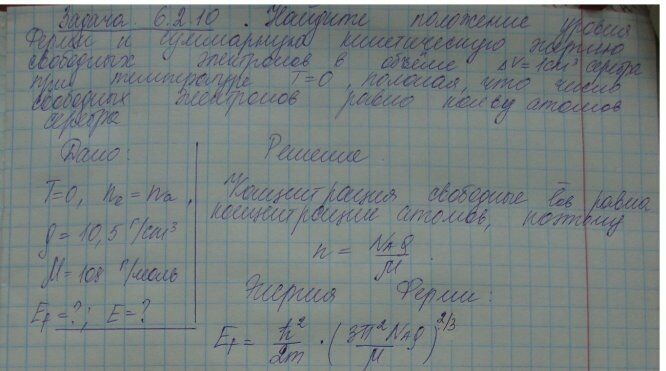 Задача 6.2.10. Найдите положение уровня
Ферми и суммарную кинетическую энергию
свободных электронов в объёме ΔV = 1 см³ серебра
при температуре T=0, полагая, что число
свободных электронов равно кол-ву атомов
серебра
Дано:
T=0, nₑ = nₐ,
ρ = 10,5 г/см³
M = 108 г/моль
E_f = ?; E = ?
Решение
Концентрация свободные ē-ов равна
концентрации атомов, поэтому
n = N_A ρ / M.
Энергия Ферми:
E_f = ħ²/2m · (3π² N_A ρ / M)^2/3